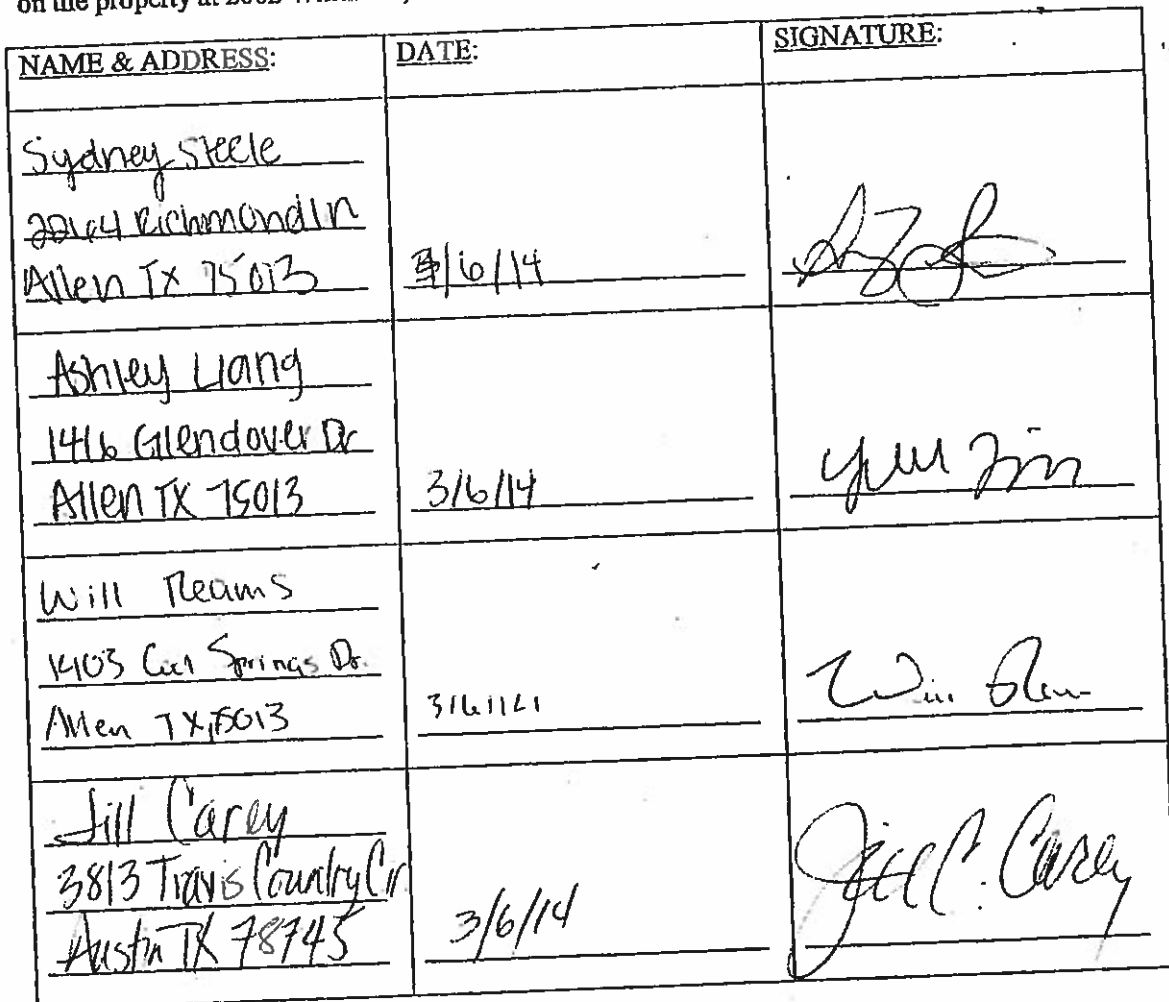 on the property at 2002
NAME & ADDRESS: DATE: SIGNATURE:
Sydney Steele
Richmond Ln
Allen TX 75013 3/6/14
Ashley Liang
1416 Glendover Dr
Allen TX 75013 3/6/14
Will Reams
1403 Springs Dr.
Allen TX, 75013 3/6/14
Jill Carey
3813 Travis Country Cir
Austin TX 78745 3/6/14 Jill C. Carey